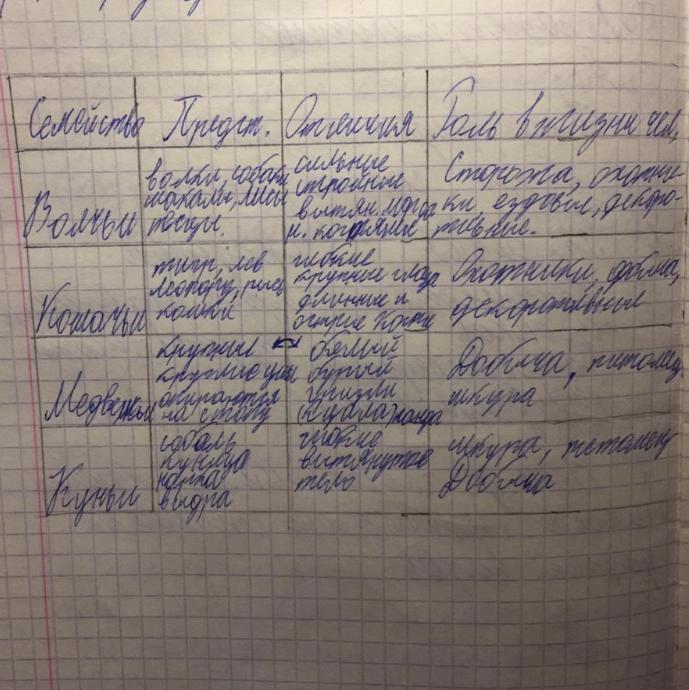 Семейство Предст. Отличия Роль в жизни чел.
Волчьи
волки, собаки
шакалы, лисы
песцы.
сильные
стройные
вытян. морда
с когтями
Сторожа, охотни-
ки, ездовые, декора-
тивные.
Кошачьи
тигр, лев
леопард, рысь
кошки
гибкие
крупные глаза
длинные и
острые когти
Охотники, фобма,
декоративные
Медвежьи
крупные
круглые уши
опираются
на стопу
белый
бурый
гризли
коала, панда
Добыча, питомец
шкура
Куньи
соболь
куница
норка
выдра
гибкие
вытянутое
тело
шкура, питомец
Добыча